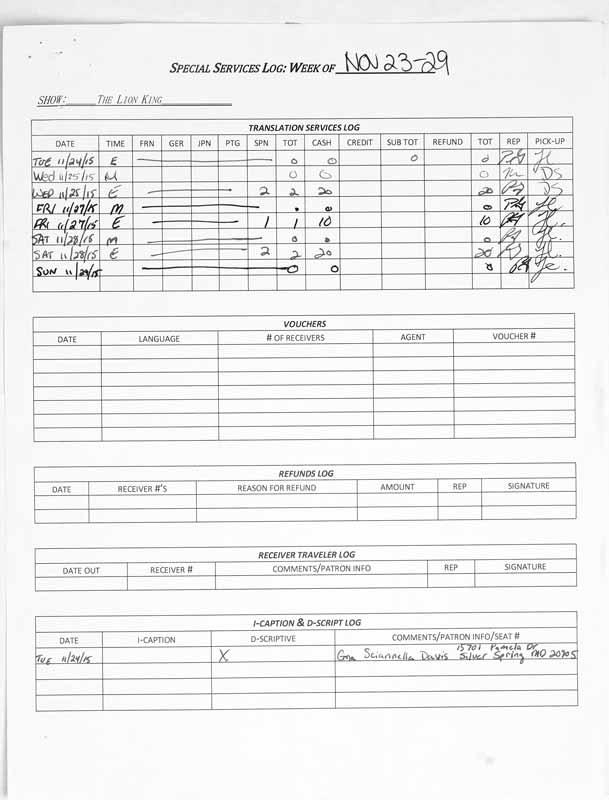 SPECIAL SERVICES LOG: WEEK OF NOV 23-29
SHOW: THE LION KING
TRANSLATION SERVICES LOG
DATE TIME FRN GER JPN PTG SPN TOT CASH CREDIT SUB TOT REFUND TOT REP PICK-UP
TUE 11/24/15 E 0 0 0 0
Wed 11/25/15 M 0 0 0 DS
WED 11/25/15 E 2 2 20 20 DS
FRI 11/27/15 M 0 0 0
FRI 11/27/15 E 1 1 10 10
SAT 11/28/15 M 0 0 0
SAT 11/28/15 E 2 2 20 20
SUN 11/29/15 0 0 0
VOUCHERS
DATE LANGUAGE # OF RECEIVERS AGENT VOUCHER #
REFUNDS LOG
DATE RECEIVER #'S REASON FOR REFUND AMOUNT REP SIGNATURE
RECEIVER TRAVELER LOG
DATE OUT RECEIVER # COMMENTS/PATRON INFO REP SIGNATURE
I-CAPTION & D-SCRIPT LOG
DATE I-CAPTION D-SCRIPTIVE COMMENTS/PATRON INFO/SEAT #
15701 Pamela Dr
TUE 11/24/15 X Sciannella Davis Silver Spring MD 20905